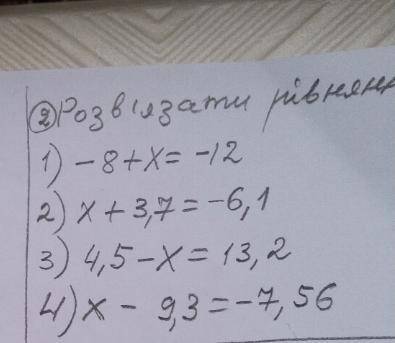 ② Розв'язати рівнянн
1) -8+x= -12
2) x + 3,7 = -6,1
3) 4,5 - x = 13,2
4) x - 9,3 = -7,56